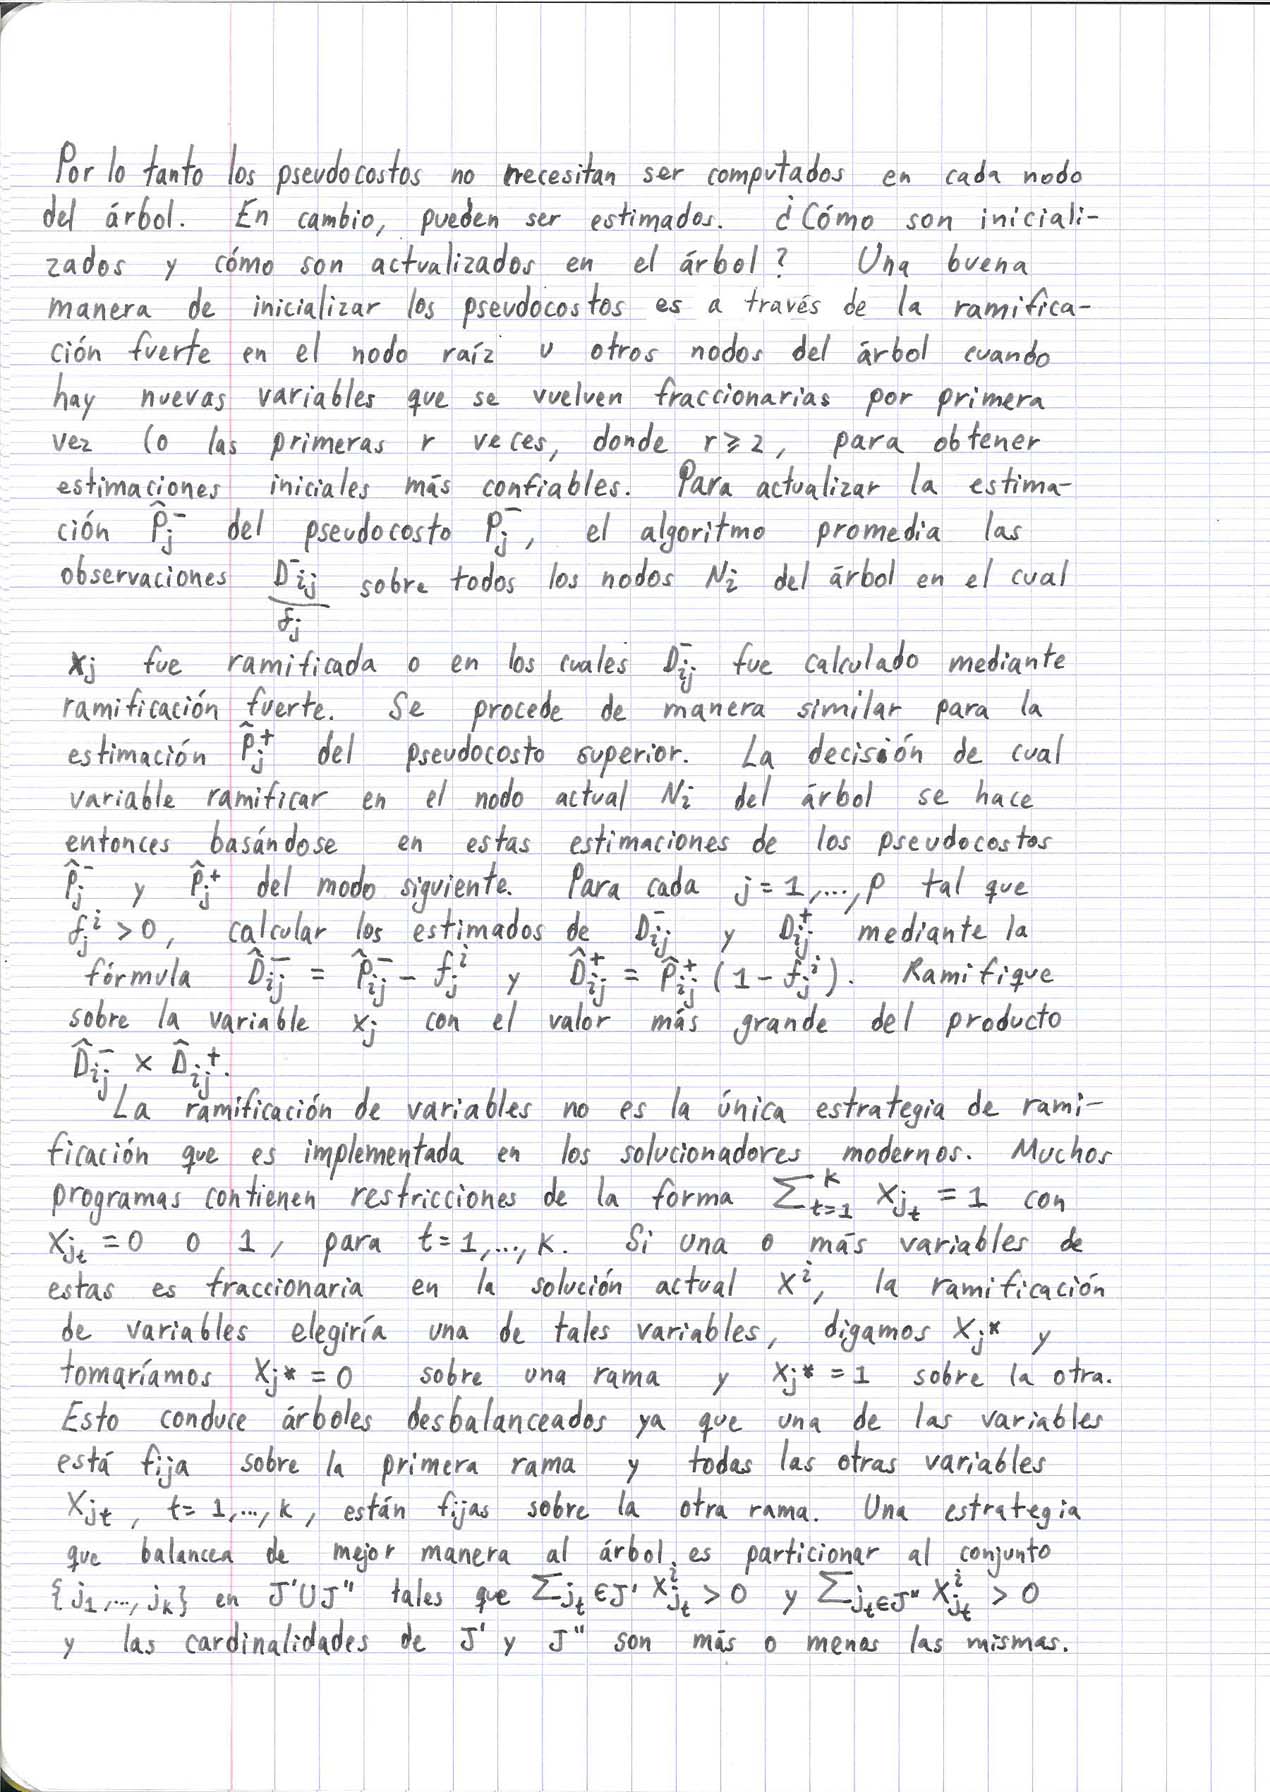 Por lo tanto los pseudocostos no necesitan ser computados en cada nodo
del árbol. En cambio, pueden ser estimados. ¿Cómo son iniciali-
zados y cómo son actualizados en el árbol? Una buena
manera de inicializar los pseudocostos es a través de la ramifica-
ción fuerte en el nodo raíz u otros nodos del árbol cuando
hay nuevas variables que se vuelven fraccionarias por primera
vez (o las primeras r veces, donde r ≥ 2, para obtener
estimaciones iniciales más confiables. Para actualizar la estima-
ción P̂_j^- del pseudocosto P_j^-, el algoritmo promedia las
observaciones D^-_{ij}/f_j sobre todos los nodos N_i del árbol en el cual
x_j fue ramificada o en los cuales D_{ij}^- fue calculado mediante
ramificación fuerte. Se procede de manera similar para la
estimación P̂_j^+ del pseudocosto superior. La decisión de cual
variable ramificar en el nodo actual N_i del árbol se hace
entonces basándose en estas estimaciones de los pseudocostos
P̂_j^- y P̂_j^+ del modo siguiente. Para cada j = 1,..., p tal que
f_j^i > 0, calcular los estimados de D_{ij}^- y D_{ij}^+ mediante la
fórmula D̂_{ij}^- = P̂_{ij}^- - f_j^i y D̂_{ij}^+ = P̂_{ij}^+ (1 - f_j^i). Ramifique
sobre la variable x_j con el valor más grande del producto
D̂_{ij}^- × D̂_{ij}^+.
La ramificación de variables no es la única estrategia de rami-
ficación que es implementada en los solucionadores modernos. Muchos
programas contienen restricciones de la forma ∑_{t=1}^k x_{j_t} = 1 con
x_{j_t} = 0 o 1, para t = 1,..., k. Si una o más variables de
estas es fraccionaria en la solución actual x^i, la ramificación
de variables elegiría una de tales variables, digamos x_{j*} y
tomaríamos x_{j*} = 0 sobre una rama y x_{j*} = 1 sobre la otra.
Esto conduce árboles desbalanceados ya que una de las variables
está fija sobre la primera rama y todas las otras variables
x_{j_t}, t = 1,..., k, están fijas sobre la otra rama. Una estrategia
que balancea de mejor manera al árbol, es particionar al conjunto
{j_1,..., j_k} en J' ∪ J'' tales que ∑_{j_t ∈ J'} x_{j_t}^i > 0 y ∑_{j_t ∈ J''} x_{j_t}^i > 0
y las cardinalidades de J' y J'' son más o menos las mismas.